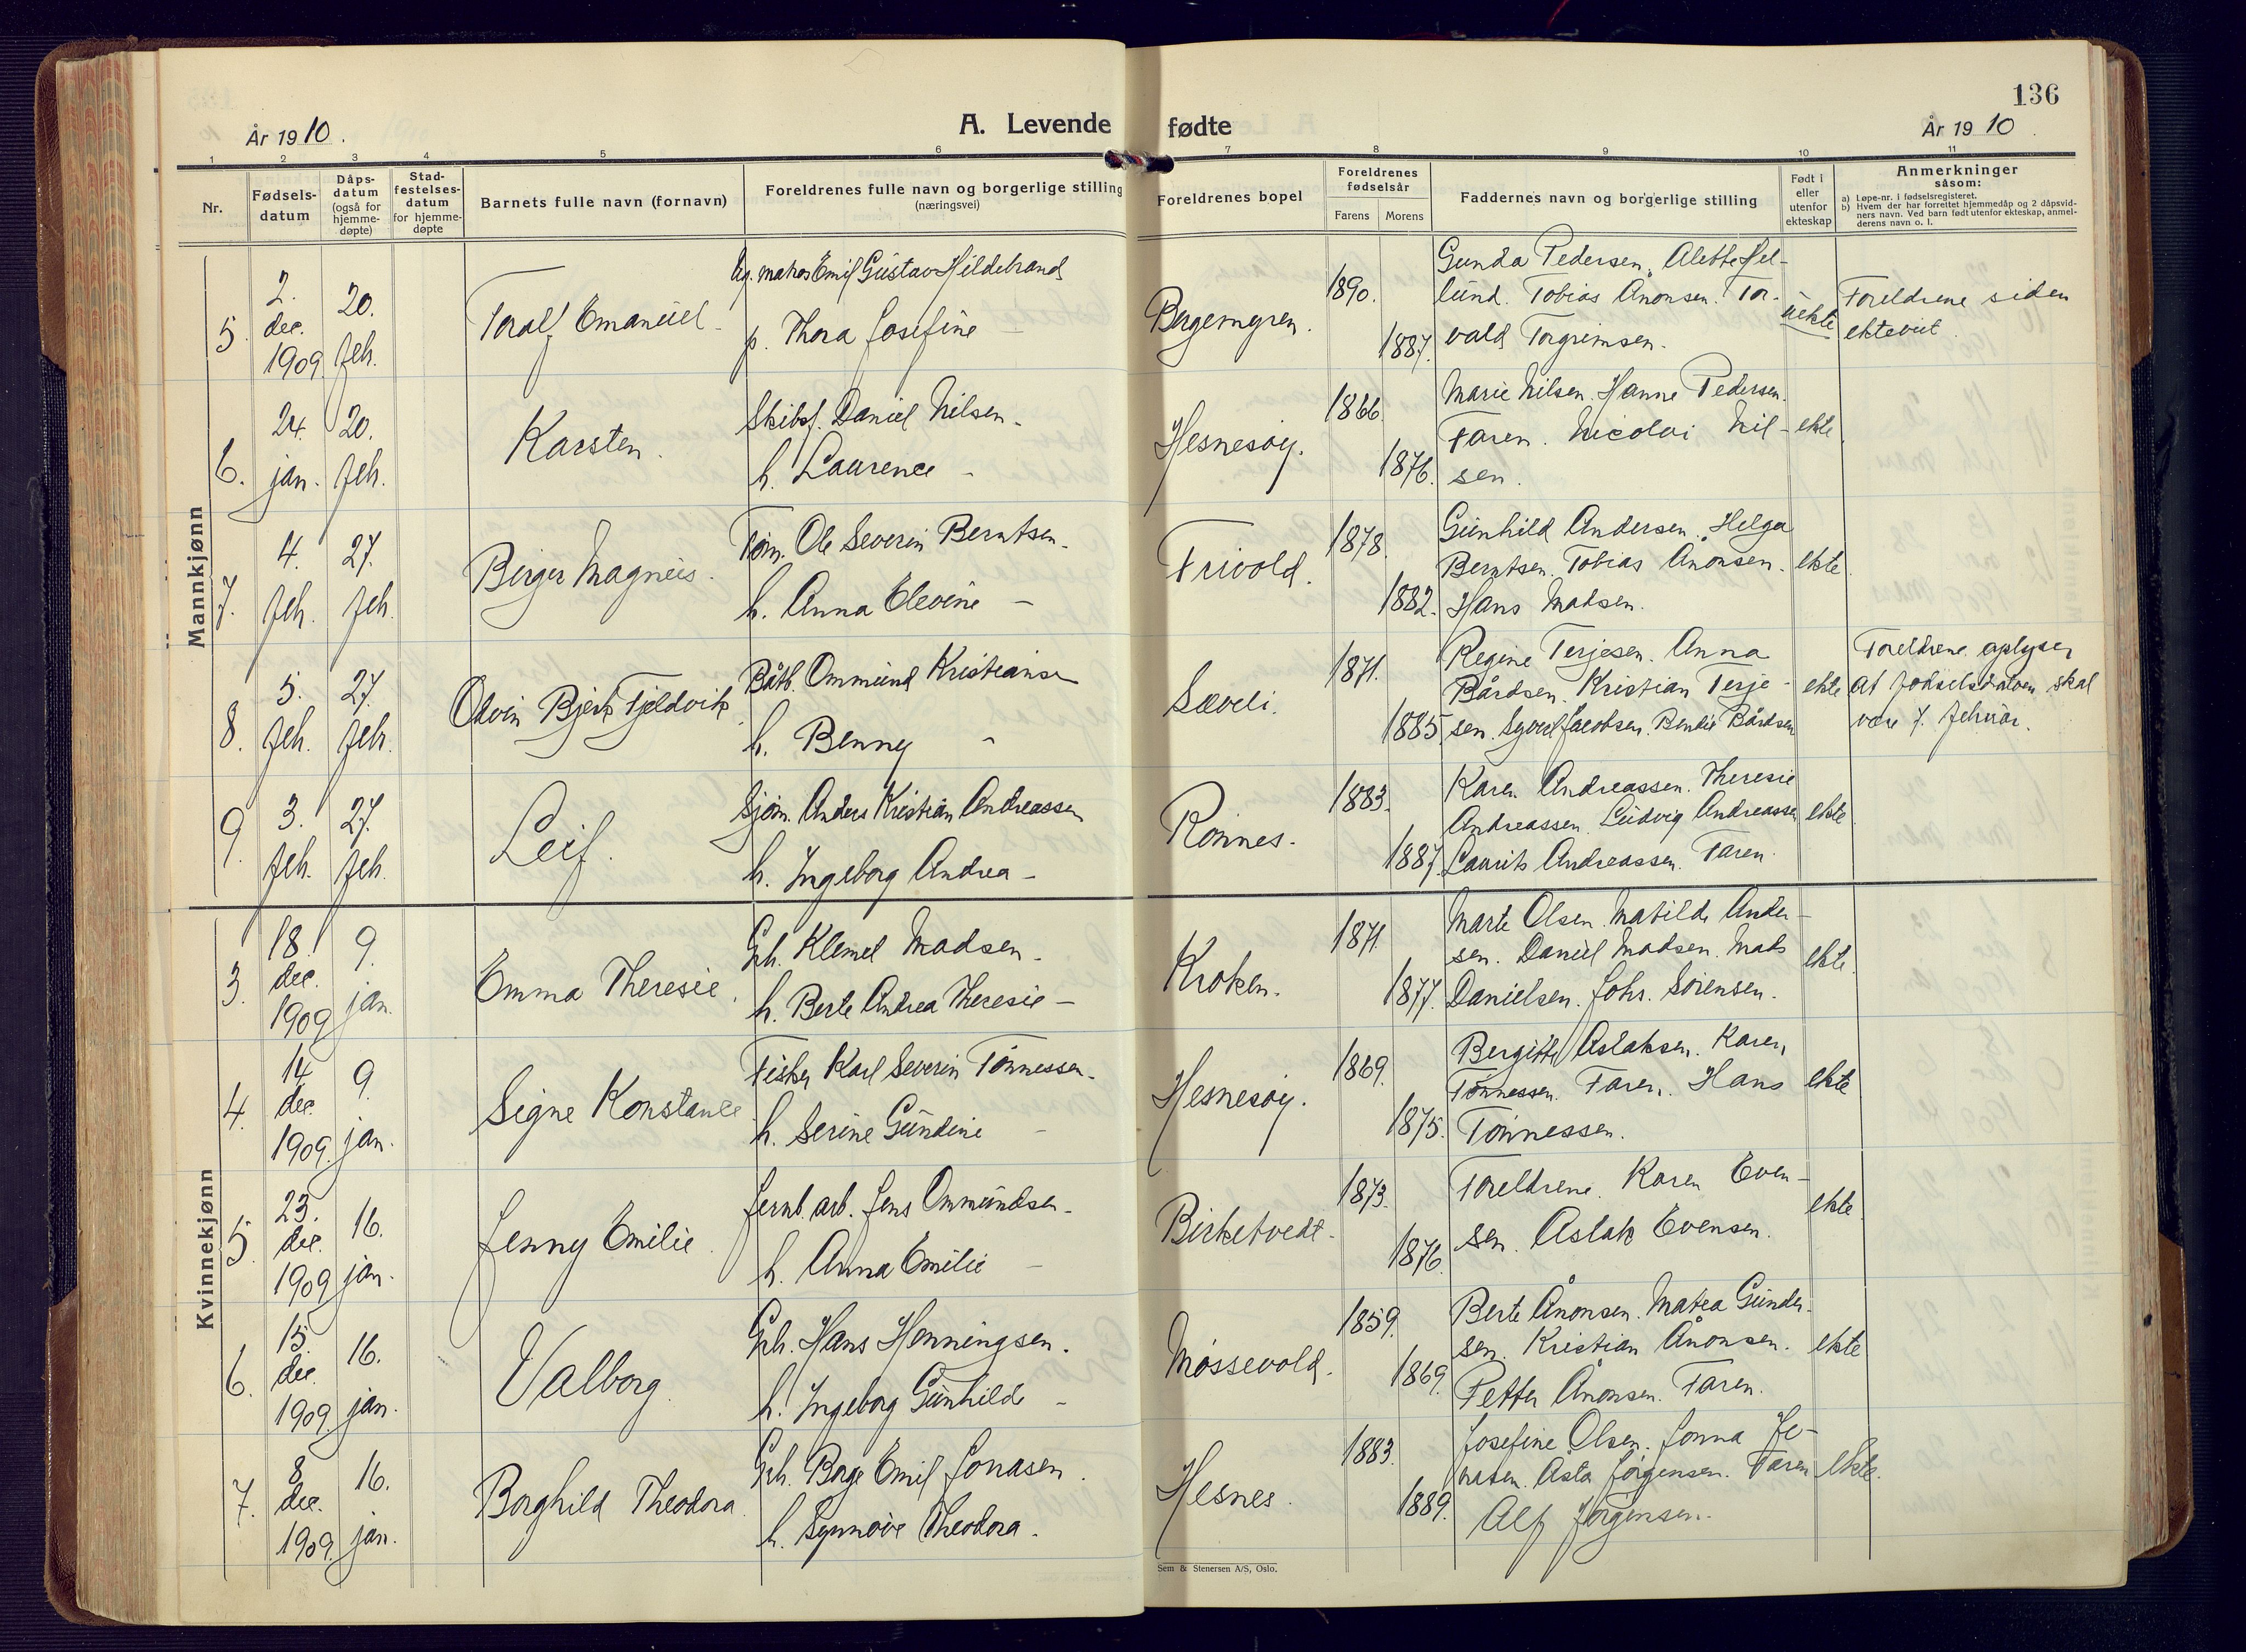 136
År 1910.
A. Levende fødte
År 1910.
1 2 3 4 5 6 7 8 9 10 11
Nr.
Fødsels-
datum
Dåps-
datum
(også for
hjemme-
døpte)
Stad-
festelses-
datum
for hjemme-
døpte
Barnets fulle navn (fornavn)
Foreldrenes fulle navn og borgerlige stilling
(næringsvei)
Foreldrenes bopel
Foreldrenes
fødselsår
Farens Morens
Faddernes navn og borgerlige stilling
Født i
eller
utenfor
ekteskap
Anmerkninger
såsom:
a) Løpe-nr. i fødselsregisteret.
b) Hvem der har forrettet hjemmedåp og 2 dåpsvid-
ners navn. Ved barn født utenfor ekteskap, anmel-
derens navn o. l.
Mannkjønn
5.
2.
dec.
1909
20.
feb.
Toralf Emanuel
Ug. matros Emil Gustav Hildebrand
p. Thora Josefine –
Bergemyren.
1890.
1887.
Gunda Pedersen. Alette Fel-
lund. Tobias Ånonsen. Tor-
vald Torgrimsen.
uekte
Foreldrene siden
ekteviet
6.
24.
jan.
20.
feb.
Karsten.
Skibsf. Daniel Nilsen –
h. Laurence –
Hesnesøy.
1866.
1876.
Marie Nilsen. Hanne Pedersen.
Faren. Nicolai Nil-
sen.
ekte
7.
4.
feb.
27.
feb.
Birger Magnus.
Tøm. Ole Severin Berntsen –
h. Anna Elevine –
Frivold.
1878.
1882.
Gunhild Andersen. Helga
Berntsen. Tobias Ånonsen.
Hans Madsen.
ekte.
8.
5.
feb.
27.
feb.
Odvin Bjerk Fjeldvik
Båtb. Ommund Kristiansen
h. Benny –
Sæveli.
1871.
1885.
Regine Terjesen. Anna
Bårdsen. Kristian Terje-
sen. Syvert Jacobsen. Bendix Bårdsen
ekte
Foreldrene oplyser
at fødselsdatoen skal
være 7. februar.
9.
3.
feb.
27.
feb.
Leif.
Sjøm. Anders Kristian Andreassen
h. Ingeborg Andrea –
Rønnes.
1883.
1887.
Karen Andreassen. Theresie
Andreassen. Ludvig Andreassen
Laurits Andreassen. Faren.
ekte.
Kvinnekjønn
3.
18.
dec.
1909
9.
jan.
Emma Theresie.
Gbr. Klemet Madsen.
h. Berte Andrea Theresie –
Kroken.
1871.
1877.
Marte Olsen. Matilde Ander-
sen. Daniel Madsen. Mads
Danielsen. Johs. Sørensen.
ekte.
4.
14
dec.
1909.
9.
jan.
Signe Konstance
Fisker Karl Severin Tønnessen.
h. Serine Gundine –
Hesnesøy.
1869.
1875.
Bergitte Aslaksen. Karen
Tønnessen. Faren. Hans
Tønnessen.
ekte
5.
23.
dec.
1909
16.
jan.
Jenny Emilie.
Jernb. arb. Jens Ommundsen.
h. Anna Emilie –
Birketvedt.
1873.
1876.
Foreldrene. Karen Even-
sen. Aslak Evensen.
ekte.
6.
15.
dec.
1909.
16.
jan.
Valborg.
Gbr. Hans Henningsen.
h. Ingeborg Gunhilde –
Møssevold.
1859.
1869.
Berte Ånonsen. Matea Gunder-
sen. Kristian Ånonsen.
Petter Ånonsen. Faren.
ekte
7.
8
dec.
1909.
16.
jan.
Borghild Theodora.
Gbr. Borge Emil Jonasen.
h. Synnøve Theodora.
Hesnes.
1883.
1889.
Josefine Olsen. Jonna Jo-
nasen. Asta Jørgensen. Faren
Alf Jørgensen.
ekte.
Sem & Stenersen A/S, Oslo.